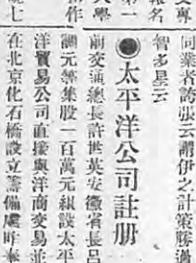 同業長訪張云謂伊之計策勝過
智多星云
●太平洋公司註册
前交通總長許世英安徽省長呂
調元等集股一百萬元組設太平
洋貿易公司直接與洋商交易並
在北京化石橋設立籌備處昨